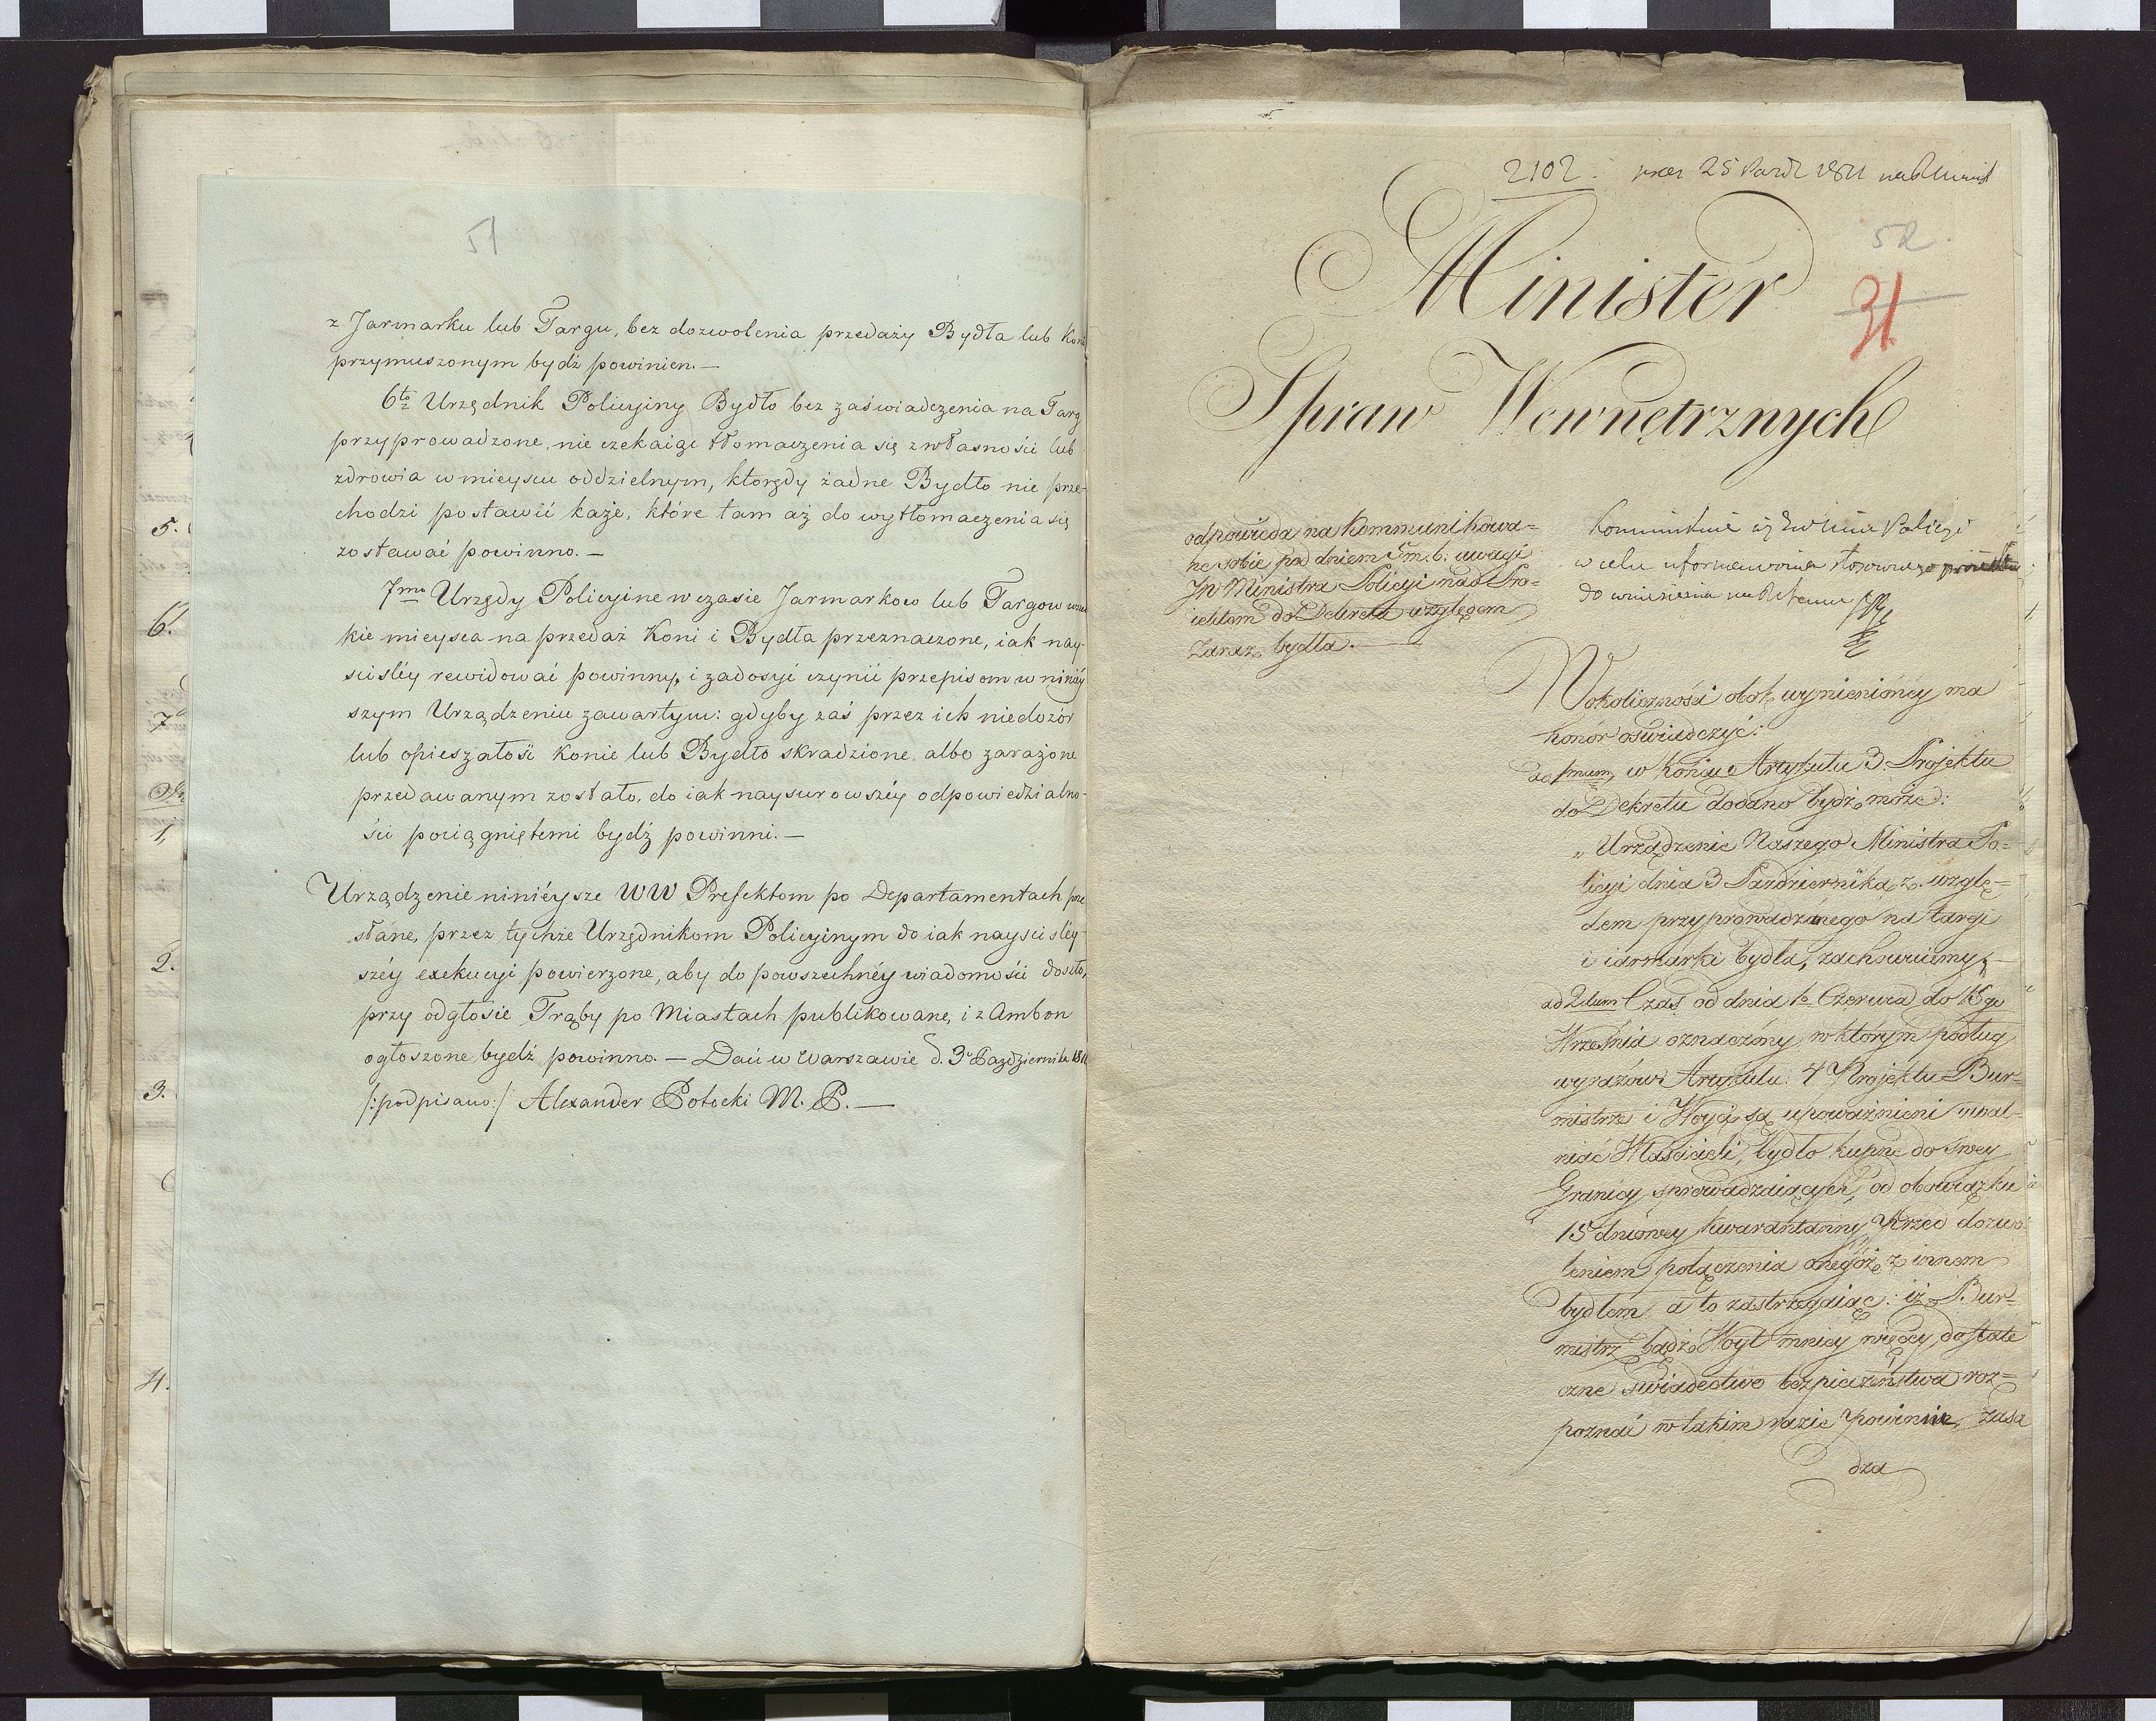 51
z Jarmarku lub Targu, bez dozwolenia przedaży Bydła lub Koni
przymuszonym bydź powinien. —
6to Urzędnik Policyiny Bydło bez zaświadczenia na Targ
przyprowadzone, nie czekaiąc tłomaczenia się z własności lub
zdrowia w mieyscu oddzielnym, którędy żadne Bydło nie prze-
chodzi postawić każe, które tam aż do wytłomaczenia się
zostawać powinno. —
7mo Urzędy Policyine w czasie Jarmarkow lub Targow
kie mieysca na przedaż Koni i Bydła przeznaczone, iak nay-
ściśley rewidować powinny, i zadosyć czynić przepisom w niniéy
szym Urządzeniu zawartym: gdyby zaś przez ich niedozór
lub opieszałość konie lub Bydło skradzione albo zarażone
przedawanym zostało, do iak naysurowszéy odpowiedzialno-
ści pociągniętemi bydź powinni. —
Urządzenie ninieysze WW Prefektom po Departamentach prze
słane, przez tychże Urzędnikom Policyinym do iak nayściśley-
széy exekucyi powierzone, aby do powszechnéy wiadomości doszło,
przy odgłosie Trąby po Miastach publikowane, i z Ambon
ogłoszone bydź powinno. — Dań w Warszawie d. 3o Października 1811
/:podpisano:/ Alexander Potocki M. P. —
5.
6.
7
1,
2.
3.
4.
2102. 25 Paźdz 1811
52
31
Minister
Spraw Wewnętrznych
odpowieda na Kommunikowa=
ne sobie pod dniem 5 m. b. uwagi
JP Ministra Policyi nad Pro-
iektem do Dekretu względem
zaraz bydła. —
w celu uformowania stosownego proiektu
do wniesienia
W okoliczności obok wymienionéy ma
honór oświadczyć:
ad 1mum, w końcu Artykułu 3. Projektu
do Dekretu dodano bydź może:
„Urządzenie Naszego Ministra Po=
licyi dnia 3 Października z. wzglę=
dem przyprowadzanego na targi
i iarmarki bydła, zachowuiemy„
ad 2dum Czas od dnia 1o Czerwca do 15go
Września oznaczony, w którym podług
wyrazów Artykułu 4 Projektu Bur=
mistrze i Woyci są upoważnieni uwal-
niać Właścicieli, bydło kupne do swey
Granicy sprowadzaiących, od obowiązku
15 dniowey kwarantanny przed dozwo
leniem połączenia onegóż z innem
bydłem, a to zastrzegaiąc: iż Bur=
mistrz bądź Woyt mniey więcey dostate
czne świadectwo bezpieczeństwa roz=
poznać w takim razie powinien, zasa
dza